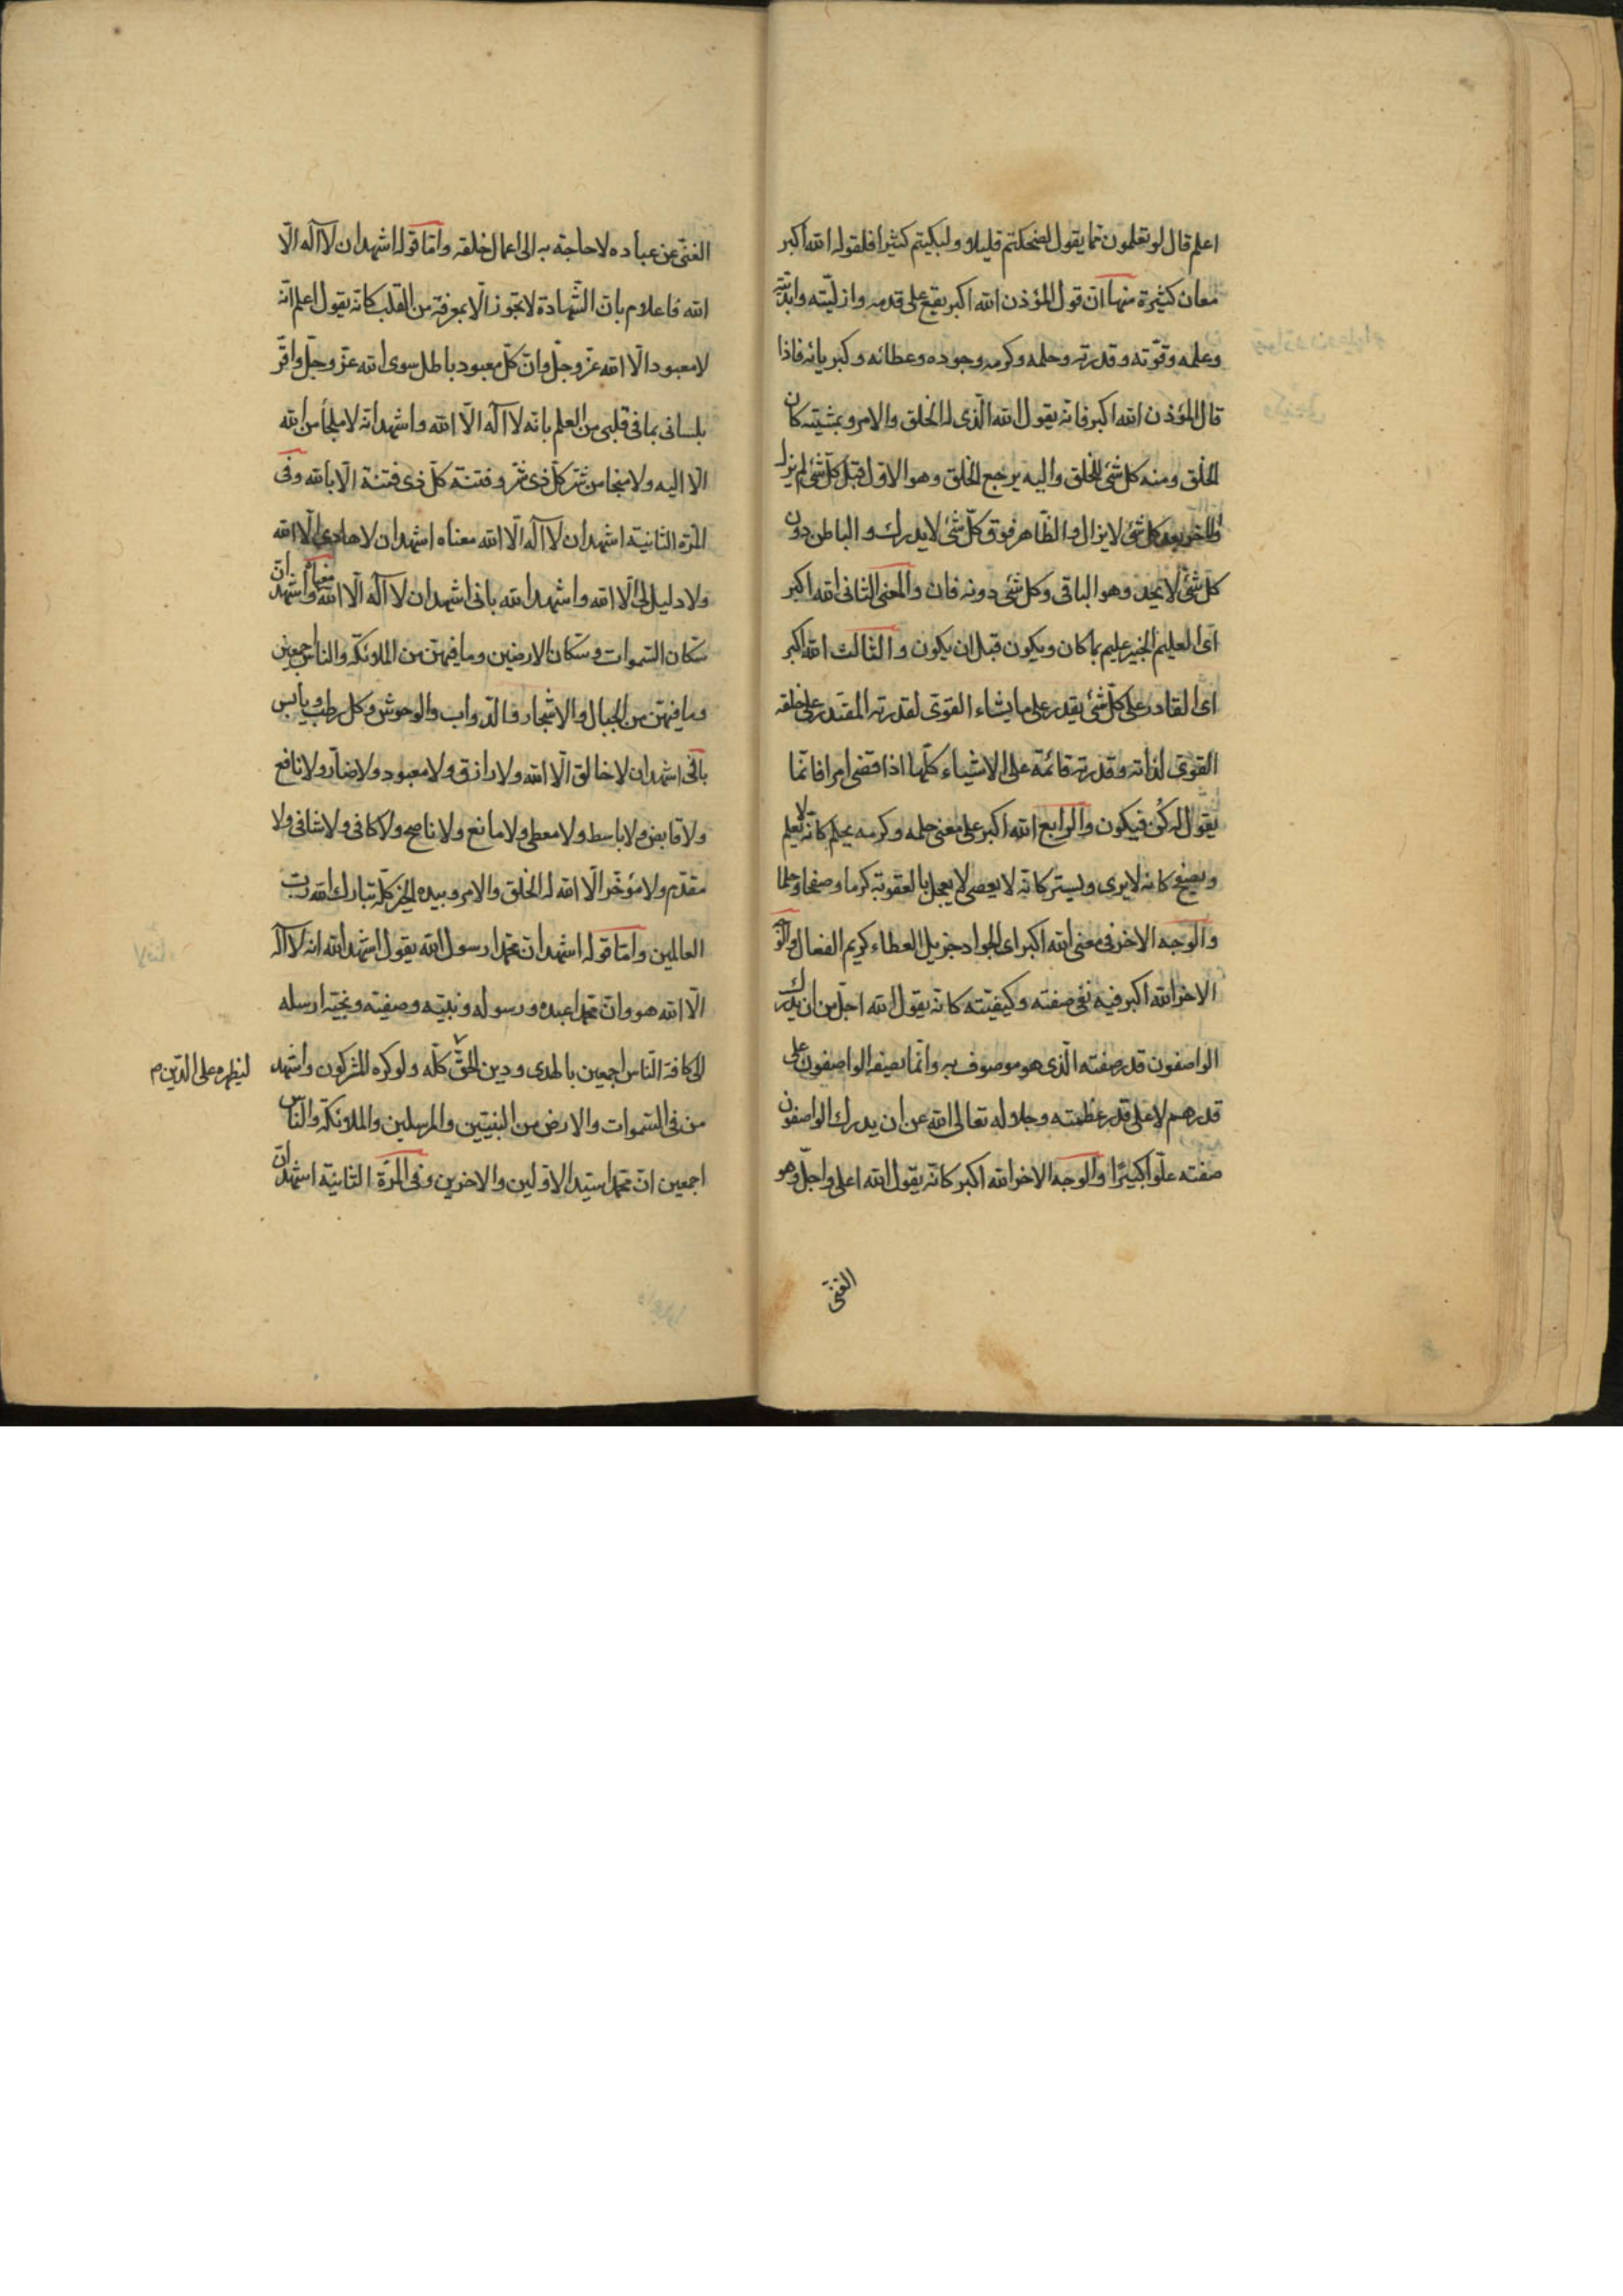 اعلم قال لو تعلمون ما يقول لضحكتم قليلا ولبكيتم كثيرا فلقوله الله اكبر
معان كثيرة منها ان قول المؤذن الله اكبر يقع على قدمه وازليته وابديته
وعلمه وقوّته وقدرته وحلمه وكرمه وجوده وعطائه وكبريائه فاذا
قال المؤذن الله اكبر فانه يقول الله الّذى له الخلق والامر وبمشيته كان
الخلق ومنه كل شئ للخلق واليه يرجع الخلق وهو الاول قبل كل شئ لم يزل
والاخر بعد كل شئ لا يزال والظّاهر فوق كلّ شئ لا يدرك والباطن دون
كل شئ لا يحد وهو الباقى وكل شئ دونه فان والمعنى الثانى الله اكبر
اى العليم الخبير عليم بما كان ويكون قبل ان يكون والثالث الله اكبر
اى القادر على كلّ شئ يقدر على ما يشاء القوىّ لقدرته المقتدر على خلقه
القوىّ لذاته وقدرته قائمة على الاشياء كلّها اذا قضى امرا فانّما
يقول له كن فيكون والرابع الله اكبر على معنى حلمه وكرمه يحلم كانّه لا يعلم
ويصفح كانه لا يرى ويستر كانّه لا يعصى لا يعجل بالعقوبة كرما وصفحا وحلما
والوجه الاخر فى معنى الله اكبر اى الجواد جزيل العطاء كريم الفعال والوجه
الاخر الله اكبر فيه نفى صفته وكيفيّته كانّه يقول الله اجلّ من ان يدرك
الواصفون قدر صفته الّذى هو موصوف به وانّما يصفه الواصفون على
قدرهم لا على قدر عظمته وجلاله تعالى الله عن ان يدرك الواصفون
صفته علوّا كبيرًا والوجه الاخر الله اكبر كانّه يقول الله اعلى واجلّ وهو
الغنى
الغنىّ عن عباده لا حاجة به الى اعمال خلقه وامّا قوله اشهد ان لا اله الّا
الله فاعلام بان الشّهادة لا تجوز الّا بمعرفة من القلب كانه يقول اعلم انّه
لا معبود الّا الله عزّ وجلّ وانّ كلّ معبود باطل سوى الله عزّ وجلّ واقرّ
بلسانى بما فى قلبى من العلم بانّه لا اله الّا الله واشهد انّه لا ملجأ من الله
الّا اليه ولا منجا من شر كلّ ذى شر وفتنة كلّ ذى فتنة الّا بالله وفى
المرّة الثانية اشهد ان لا اله الّا الله معناه اشهد ان لا هادى الّا الله
ولا دليل لى الّا الله واشهد الله بانى اشهد ان لا اله الّا الله واشهد
سكّان السّموات وسكّان الارضين وما فيهنّ من الملائكة والناس اجمعين
وما فيهنّ من الجبال والاشجار والدّواب والوحوش وكل رطب ويابس
بانّى اشهد ان لا خالق الّا الله ولا رازق ولا معبود ولا ضارّ ولا نافع
ولا قابض ولا باسط ولا معطى ولا مانع ولا ناصح ولا كافى ولا شافى ولا
مقدّم ولا مؤخّر الّا الله له الخلق والامر وبيده الخير كلّه تبارك الله ربّ
العالمين وامّا قوله اشهد ان محمّدا رسول الله يقول اشهد الله انه لا اله
الّا الله هو وان محمدا عبده ورسوله ونبيّه وصفيّه ونجيّه ارسله
الى كافة النّاس اجمعين بالهدى ودين الحقّ كلّه ولو كره المشركون واشهد
ليظهره على الدّين
من فى السّموات والارض من النبيّين والمرسلين والملائكة والنّاس
اجمعين انّ محمدا سيّد الاوّلين والاخرين وفى المرّة الثانية اشهد ان